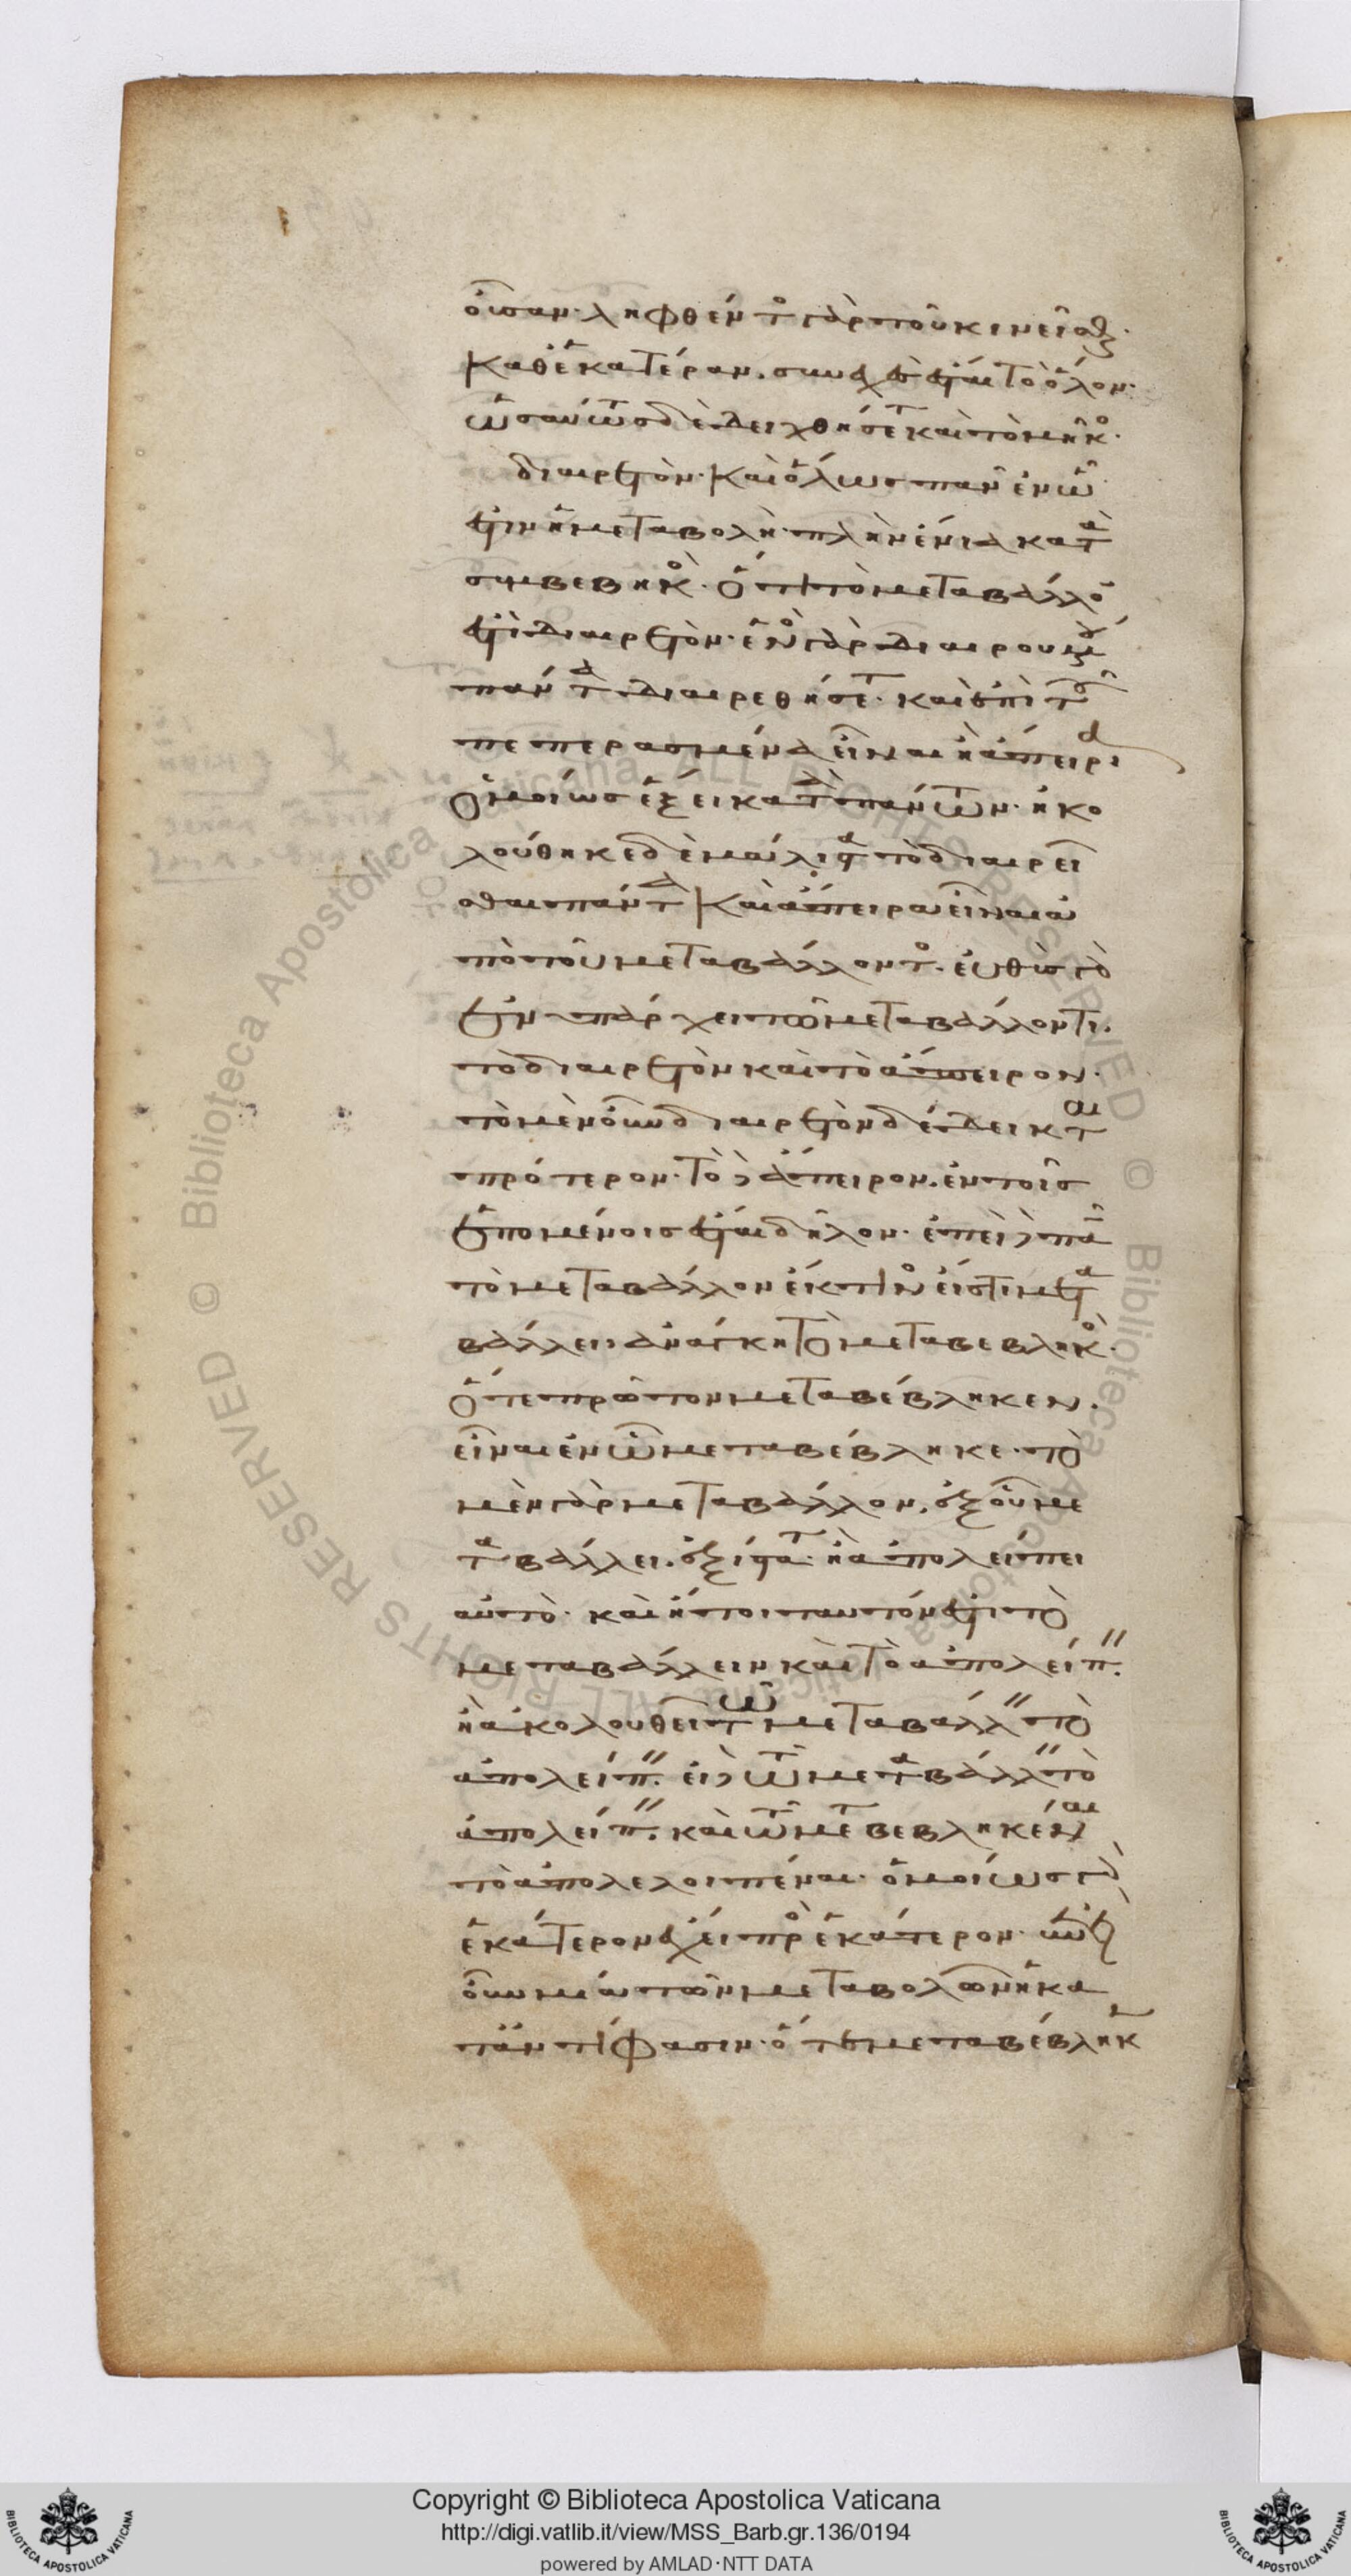 οὖσαν· ληφθέντος γὰρ τοῦ κινεῖσθαι
καθ' ἑκατέραν. συνεχὲς ἔσται τὸ ὅλον·
ὡσαύτως δὲ δειχθήσεται καὶ τὸ μῆκος
διαιρετὸν· καὶ ὅλως πᾶν ἐν ᾧ
ἐστιν ἡ μεταβολή· πλὴν ἔνια κατὰ
συμβεβηκός· ὅτι τὸ μεταβάλλον
ἐστὶ διαιρετὸν· ἑνὸς γὰρ διαιρουμένου
πάντα διαιρεθήσεται· καὶ ἐπὶ τοῦ
πεπερασμένα εἶναι ἢ ἄπειρα
ὁμοίως ἕξει κατὰ πάντων· ἠκο
λούθηκε δὲ μάλιστα τὸ διαιρεῖ
σθαι πάντα καὶ ἄπειρα εἶναι ἀ
πὸ τοῦ μεταβάλλοντος· εὐθὺς γὰρ
ἐνυπάρχει τῷ μεταβάλλοντι.
τὸ διαιρετὸν καὶ τὸ ἄπειρον·
τὸ μὲν οὖν διαιρετὸν δέδεικται
πρότερον· τὸ δ' ἄπειρον. ἐν τοῖς
ἑπομένοις ἔσται δῆλον· ἐπεὶ δὲ πᾶν
τὸ μεταβάλλον ἔκ τινος εἴς τι μετα
βάλλει, ἀνάγκη τὸ μεταβεβληκός·
ὅτε πρῶτον μεταβέβληκεν.
εἶναι ἐν ᾧ μεταβέβληκε· τὸ
μὲν γὰρ μεταβάλλον, ἐξ οὗ με
ταβάλλει. ἐξίσταται ἢ ἀπολείπει
αὐτό· καὶ ἤτοι ταυτόν ἐστι τὸ
μεταβάλλειν καὶ τὸ ἀπολείπειν.
ἢ ἀκολουθεῖ τῷ μεταβάλλειν τὸ
ἀπολείπειν. εἰ δὲ τῷ μεταβάλλειν τὸ
ἀπολείπειν. καὶ τῷ μεταβεβληκέναι
τὸ ἀπολελοιπέναι· ὁμοίως γὰρ
ἑκάτερον ἔχει πρὸς ἑκάτερον·
οὖν μία τῶν μεταβολῶν ἡ κα
τ' ἀντίφασιν· ὅτε μεταβέβληκεν
Copyright © Biblioteca Apostolica Vaticana
http://digi.vatlib.it/view/MSS_Barb.gr.136/0194
powered by AMLAD·NTT DATA